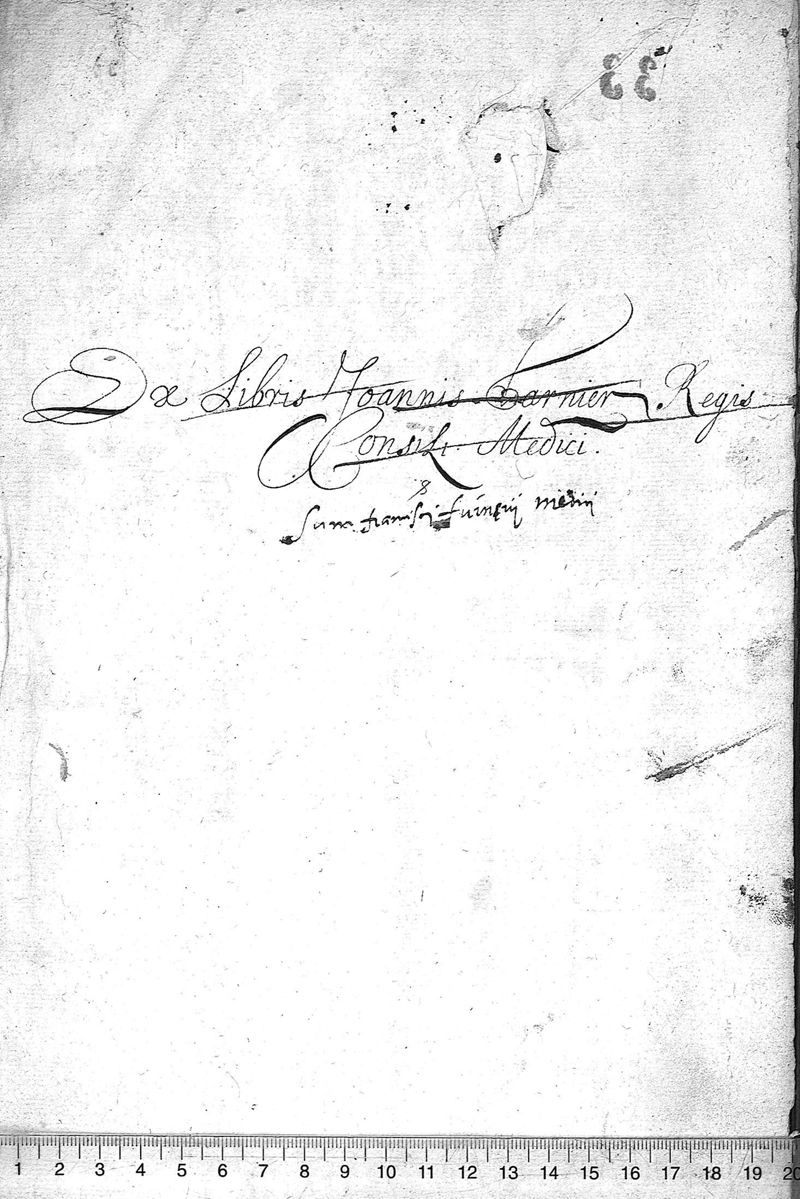 Ex Libris Joannis Garnier. Regis
Consili. Medici.
Sum francisci medici
1 2 3 4 5 6 7 8 9 10 11 12 13 14 15 16 17 18 19 20